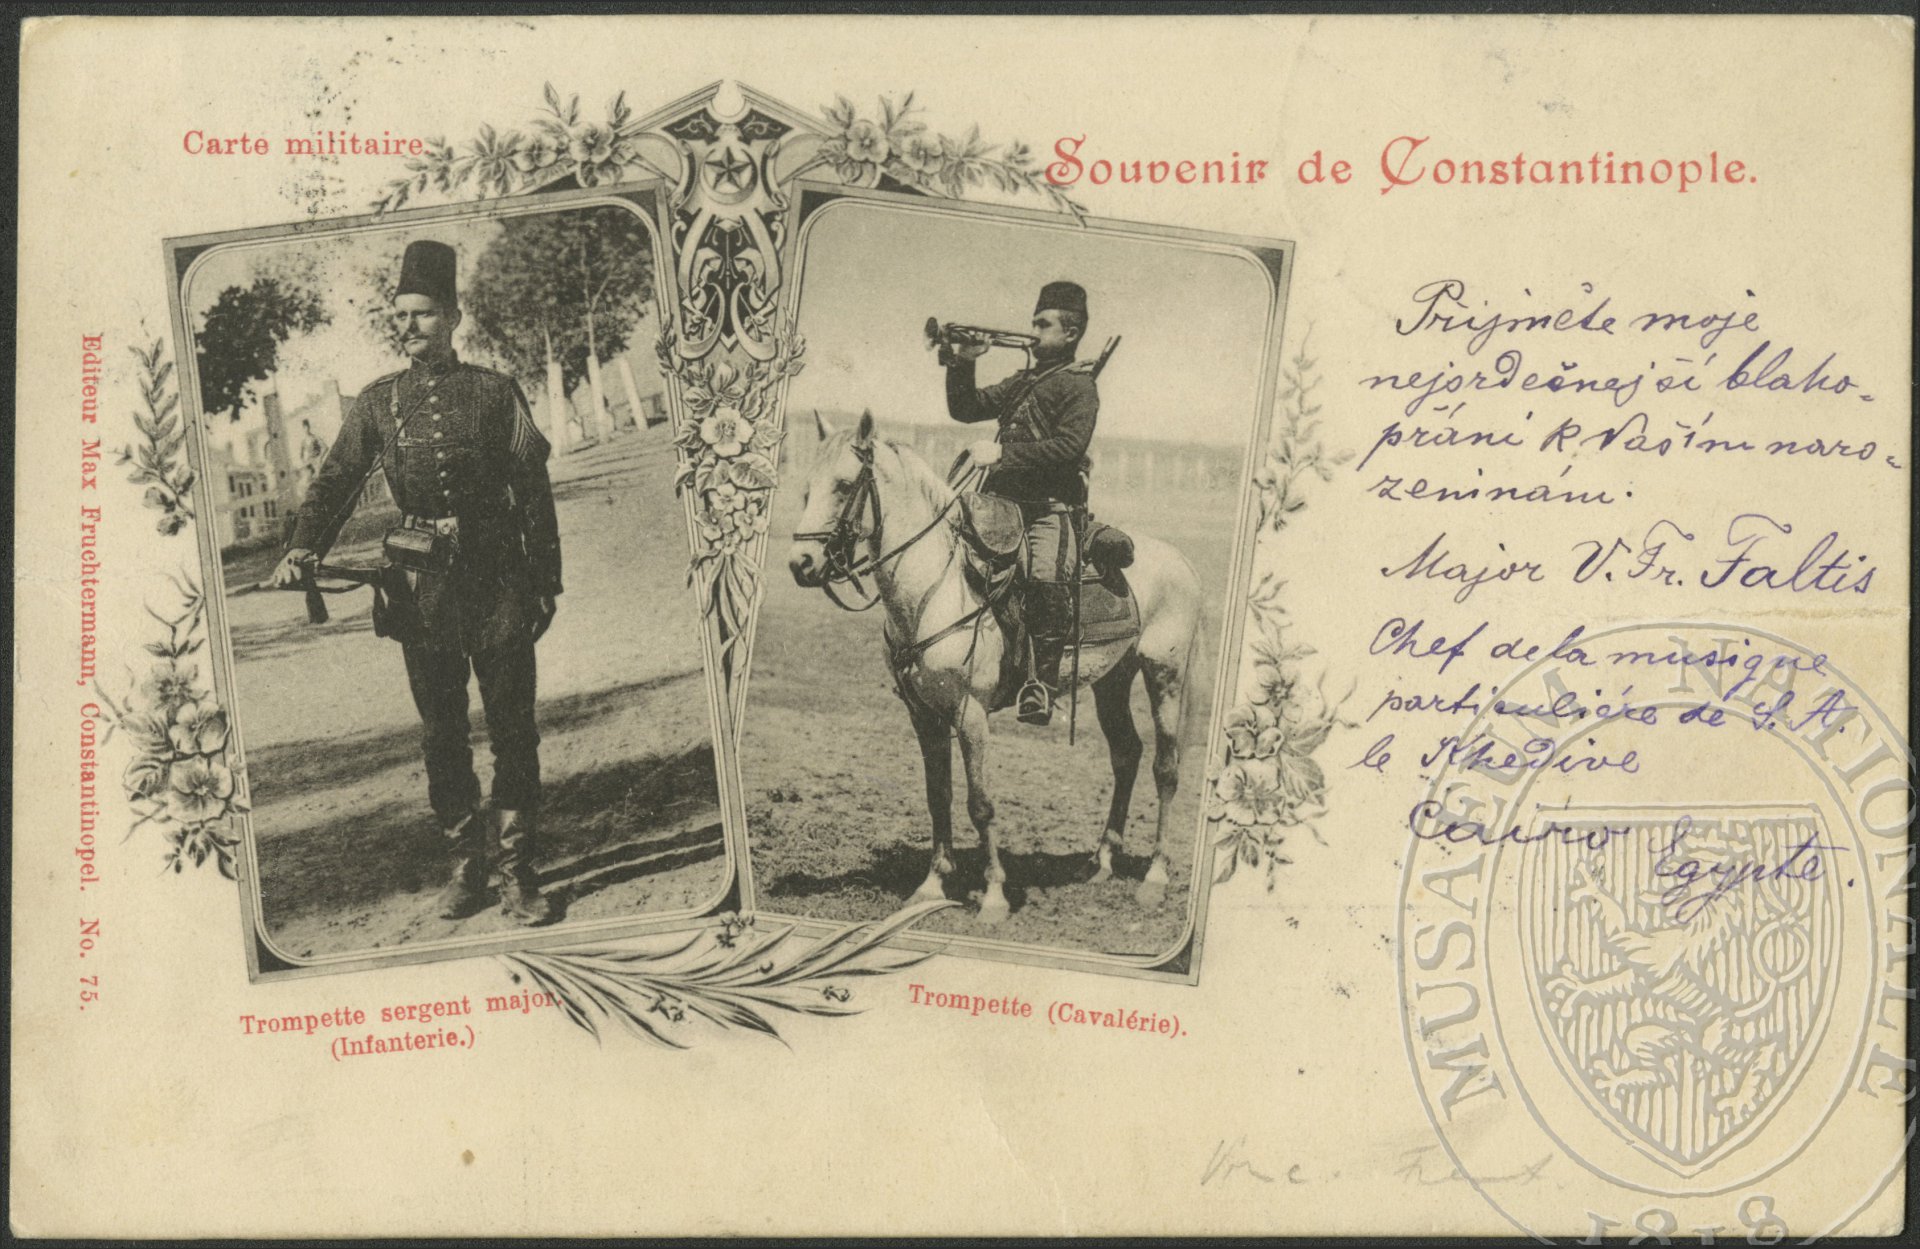 Carte militaire.
Souvenir de Constantinople.
Editeur Max Fruchtermann, Constantinopel. No. 75.
Trompette sergent major.
(Infanterie.)
Trompette (Cavalérie).
Přijměte moje
nejsrdečnejší blaho-
přání k Vašim naro-
zeninám.
Major V. Fr. Faltis
Chef de la musique
particuliére de S. A.
le Khedive
Cairo
Egypte.
MUSAEUM NATIONALE
1818